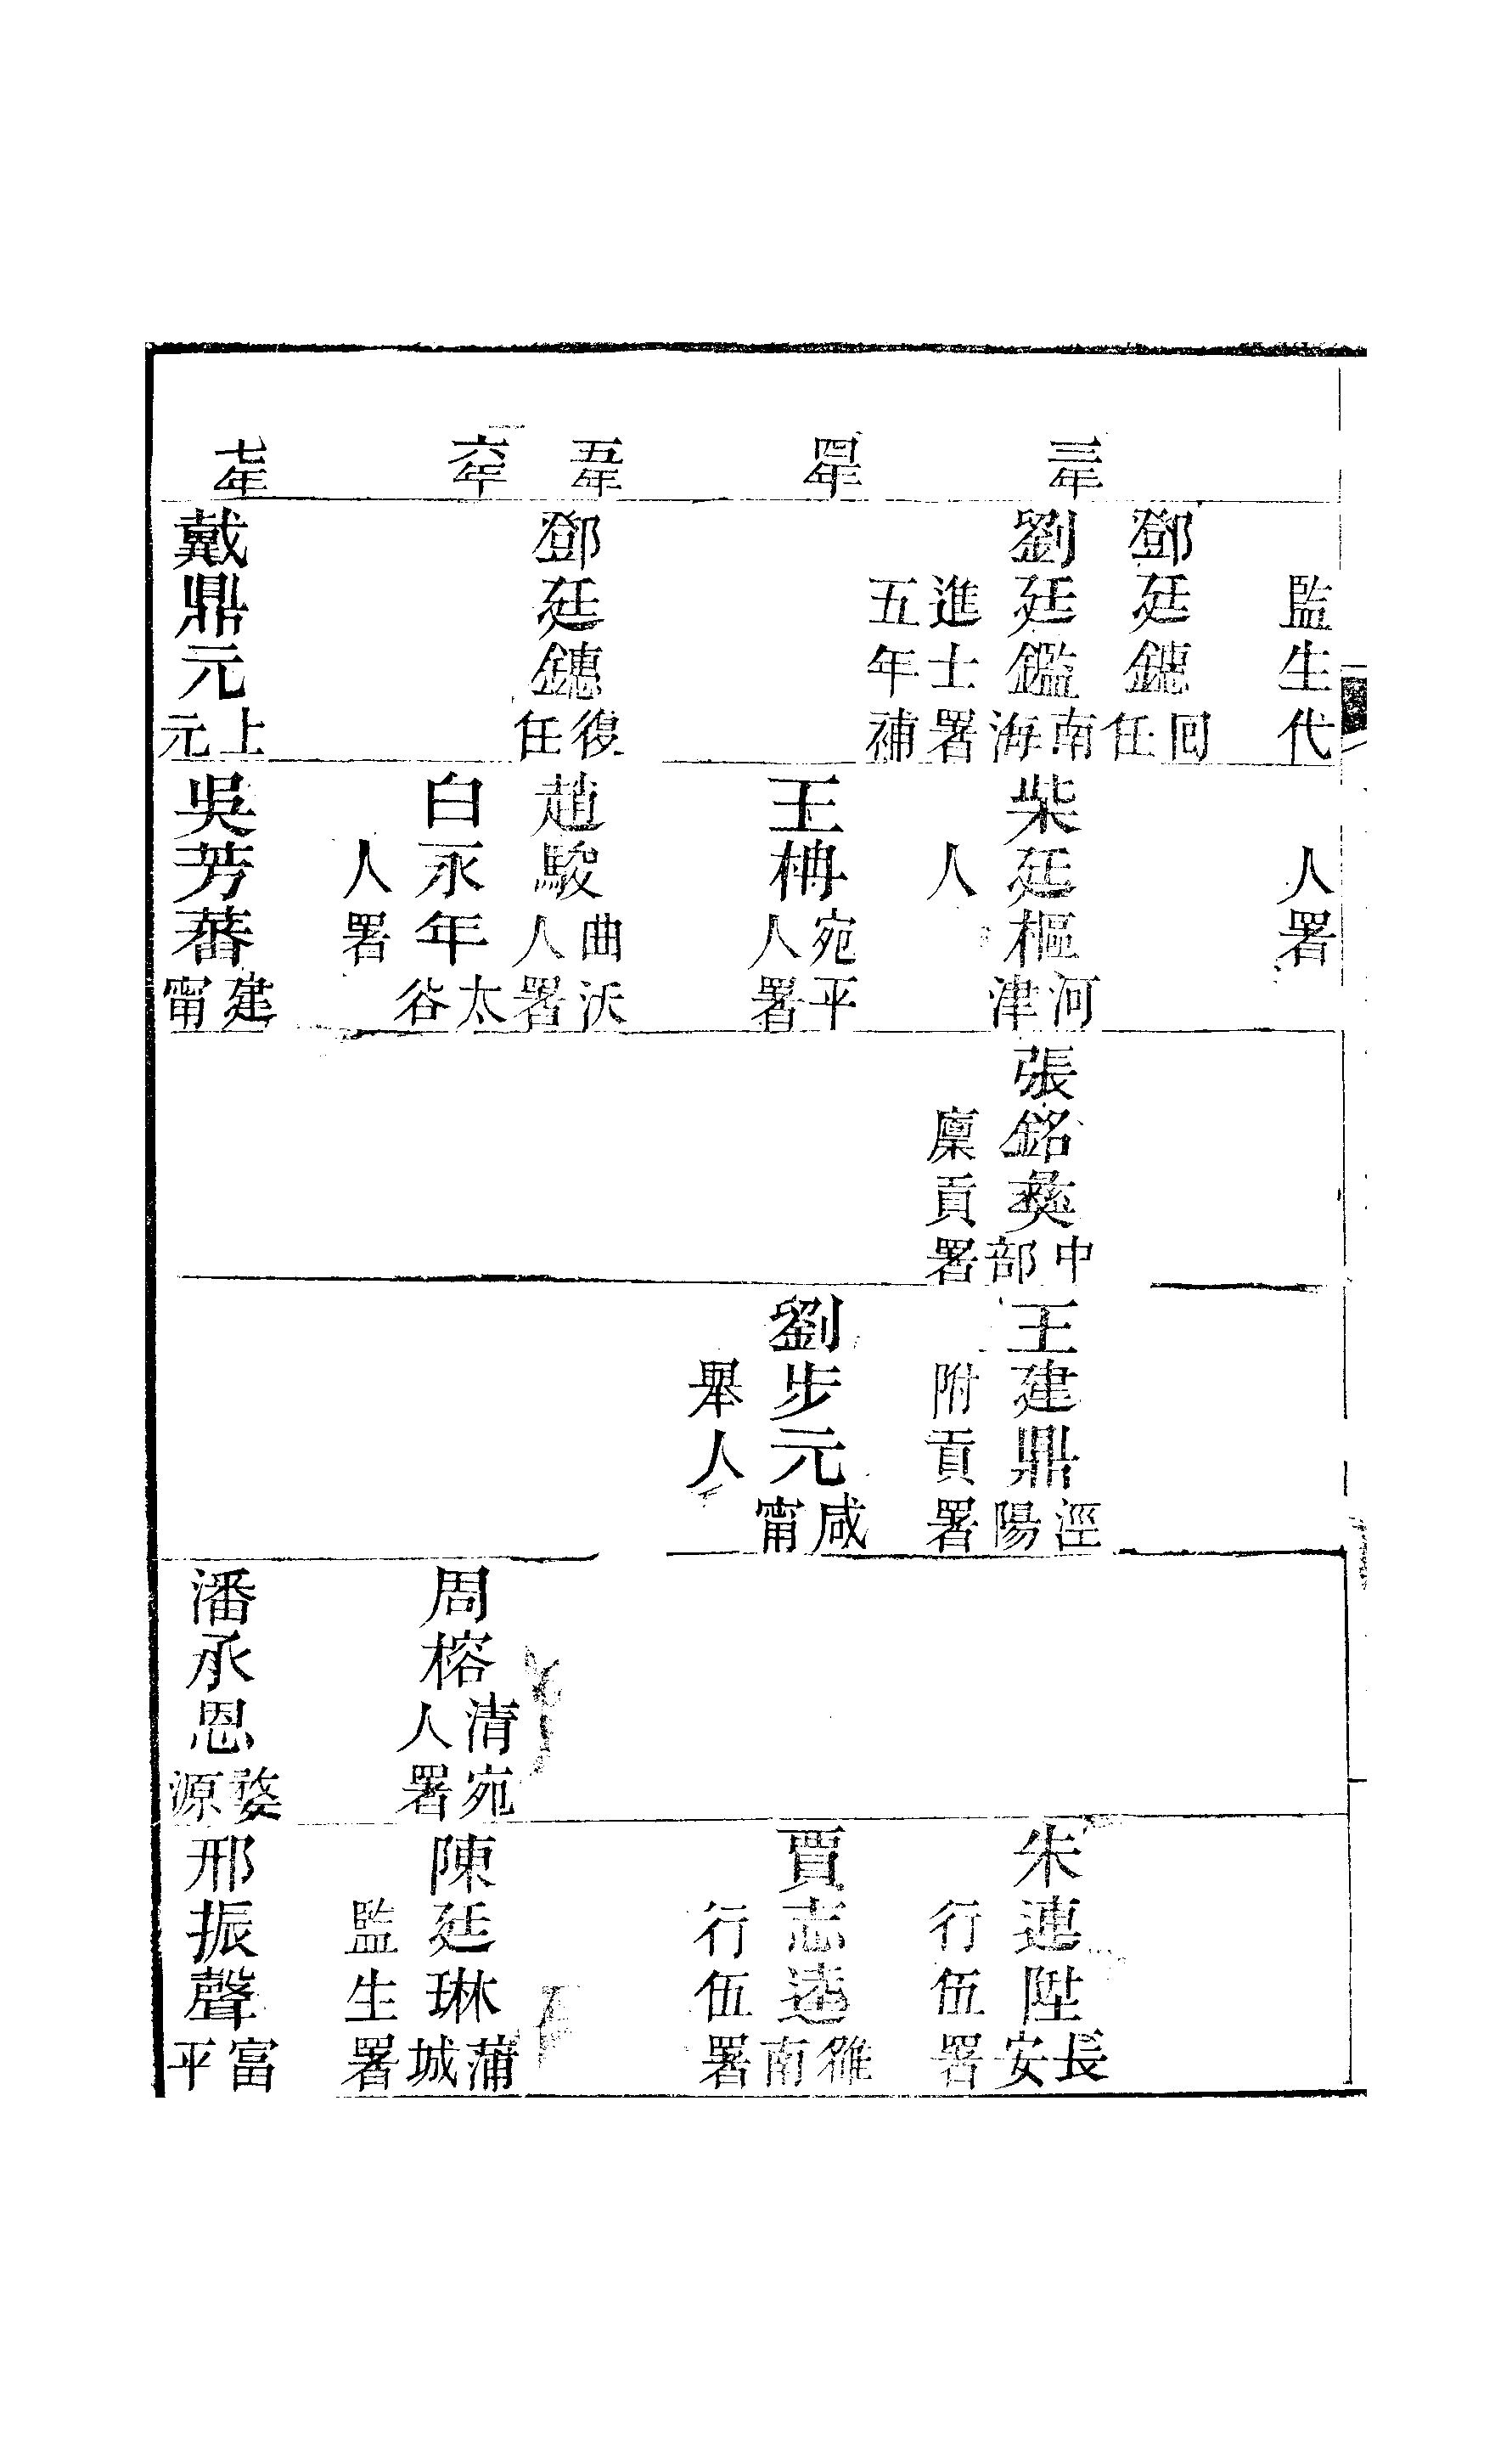 監生代
人署
鄧廷鏸回任
三年
劉廷鑑南海
進士署
五年補
柴廷樞河津
人
張銘彝中部
廩貢署
王建鼎涇陽
附貢署
朱連陞長安
行伍署
四年
王枬宛平人署
劉步元咸甯
舉人
賈志逵雒南
行伍署
五年
鄧廷鏸復任
趙駿曲沃人署
六年
白永年太谷
人署
周榕清宛人署
陳廷琳蒲城
監生署
七年
戴鼎元上元
吳芳蕃建甯
潘承恩婺源
邢振聲富平